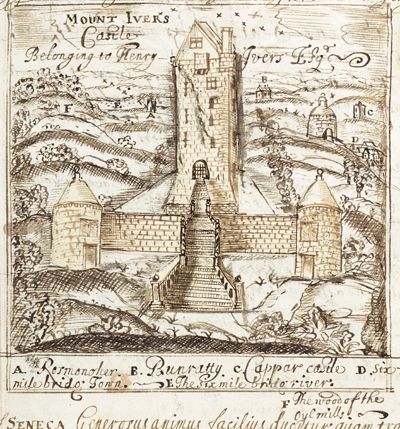 MOUNT IVERS
Castle
Belonging to Henry Ivers Esqr
F E B C
A D
A. Rosmonoher. B. Bunratty. C. Cappar castle D. Six
mile bridg Town. E. The six mile bridg river.
F The wood of the
oyl mills.
SENECA Generosus animus facilius ducitur quam